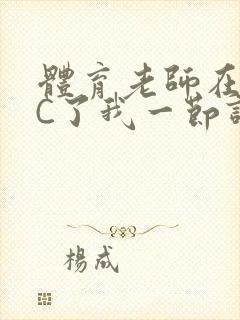 體育老師在
C了我一節
楊成